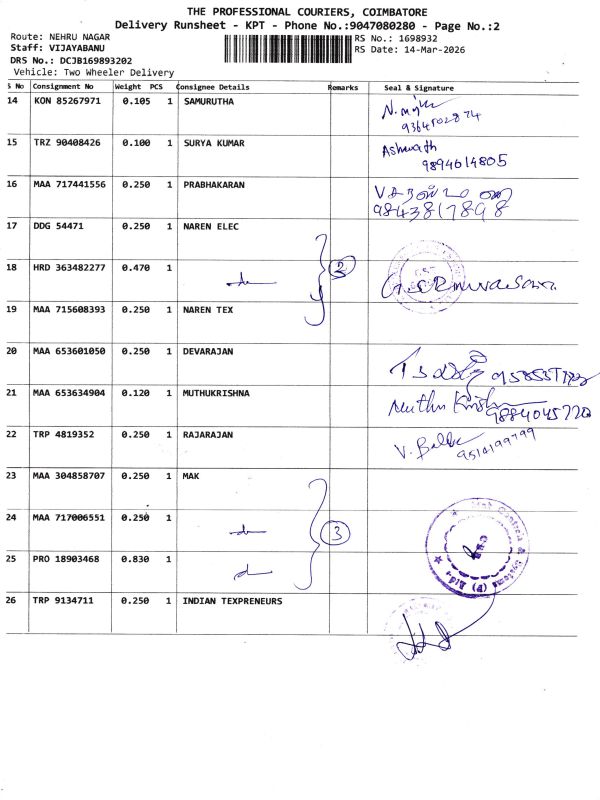 THE PROFESSIONAL COURIERS, COIMBATORE
Delivery Runsheet - KPT - Phone No.:9047080280 - Page No.:2
Route: NEHRU NAGAR
RS No.: 1698932
Staff: VIJAYABANU
RS Date: 14-Mar-2026
DRS No.: DCJB169893202
Vehicle: Two Wheeler Delivery
S No Consignment No Weight PCS Consignee Details Remarks Seal & Signature
14 KON 85267971 0.105 1 SAMURUTHA
9364502874
15 TRZ 90408426 0.100 1 SURYA KUMAR Ashwath
9894614805
16 MAA 717441556 0.250 1 PRABHAKARAN
9843817898
17 DDG 54471 0.250 1 NAREN ELEC
18 HRD 363482277 0.470 1 2
19 MAA 715608393 0.250 1 NAREN TEX
20 MAA 653601050 0.250 1 DEVARAJAN
21 MAA 653634904 0.120 1 MUTHUKRISHNA Muthu Krishna
9884045720
22 TRP 4819352 0.250 1 RAJARAJAN V.
9514199799
23 MAA 304858707 0.250 1 MAK
24 MAA 717006551 0.250 1 3
25 PRO 18903468 0.830 1
26 TRP 9134711 0.250 1 INDIAN TEXPRENEURS